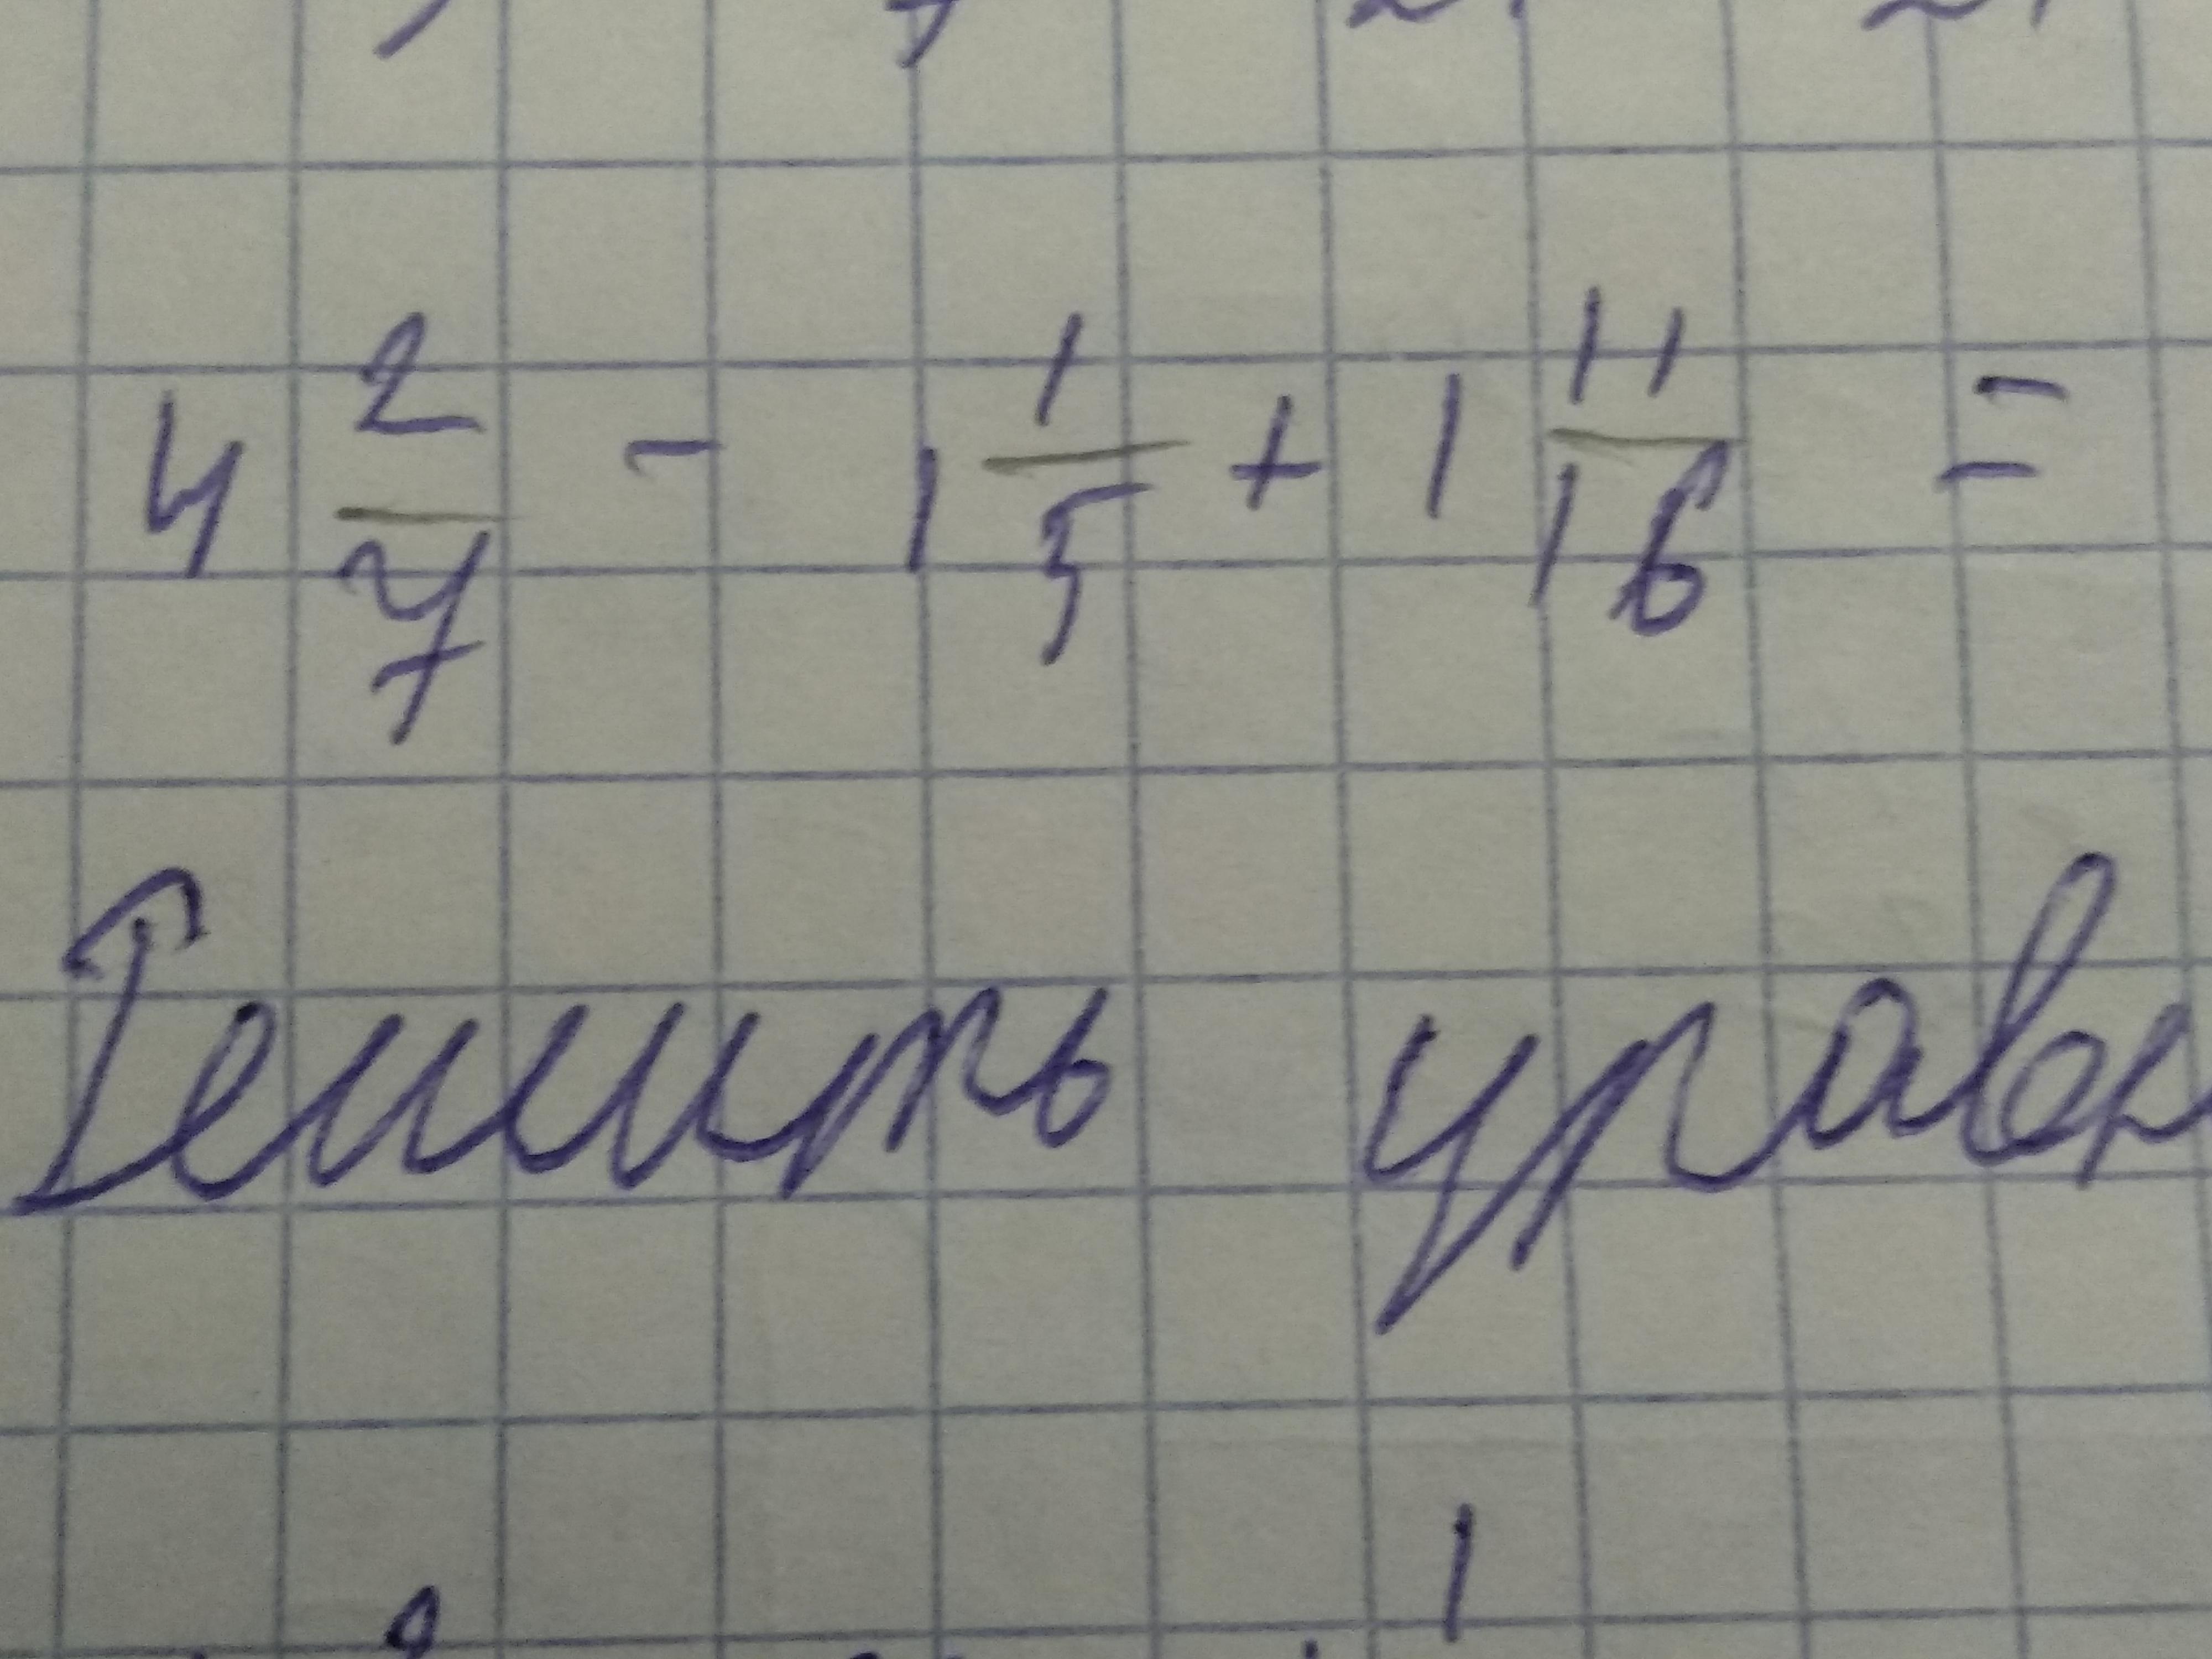 4 2/7 - 1 1/5 + 1 11/16 =
Решить уравн